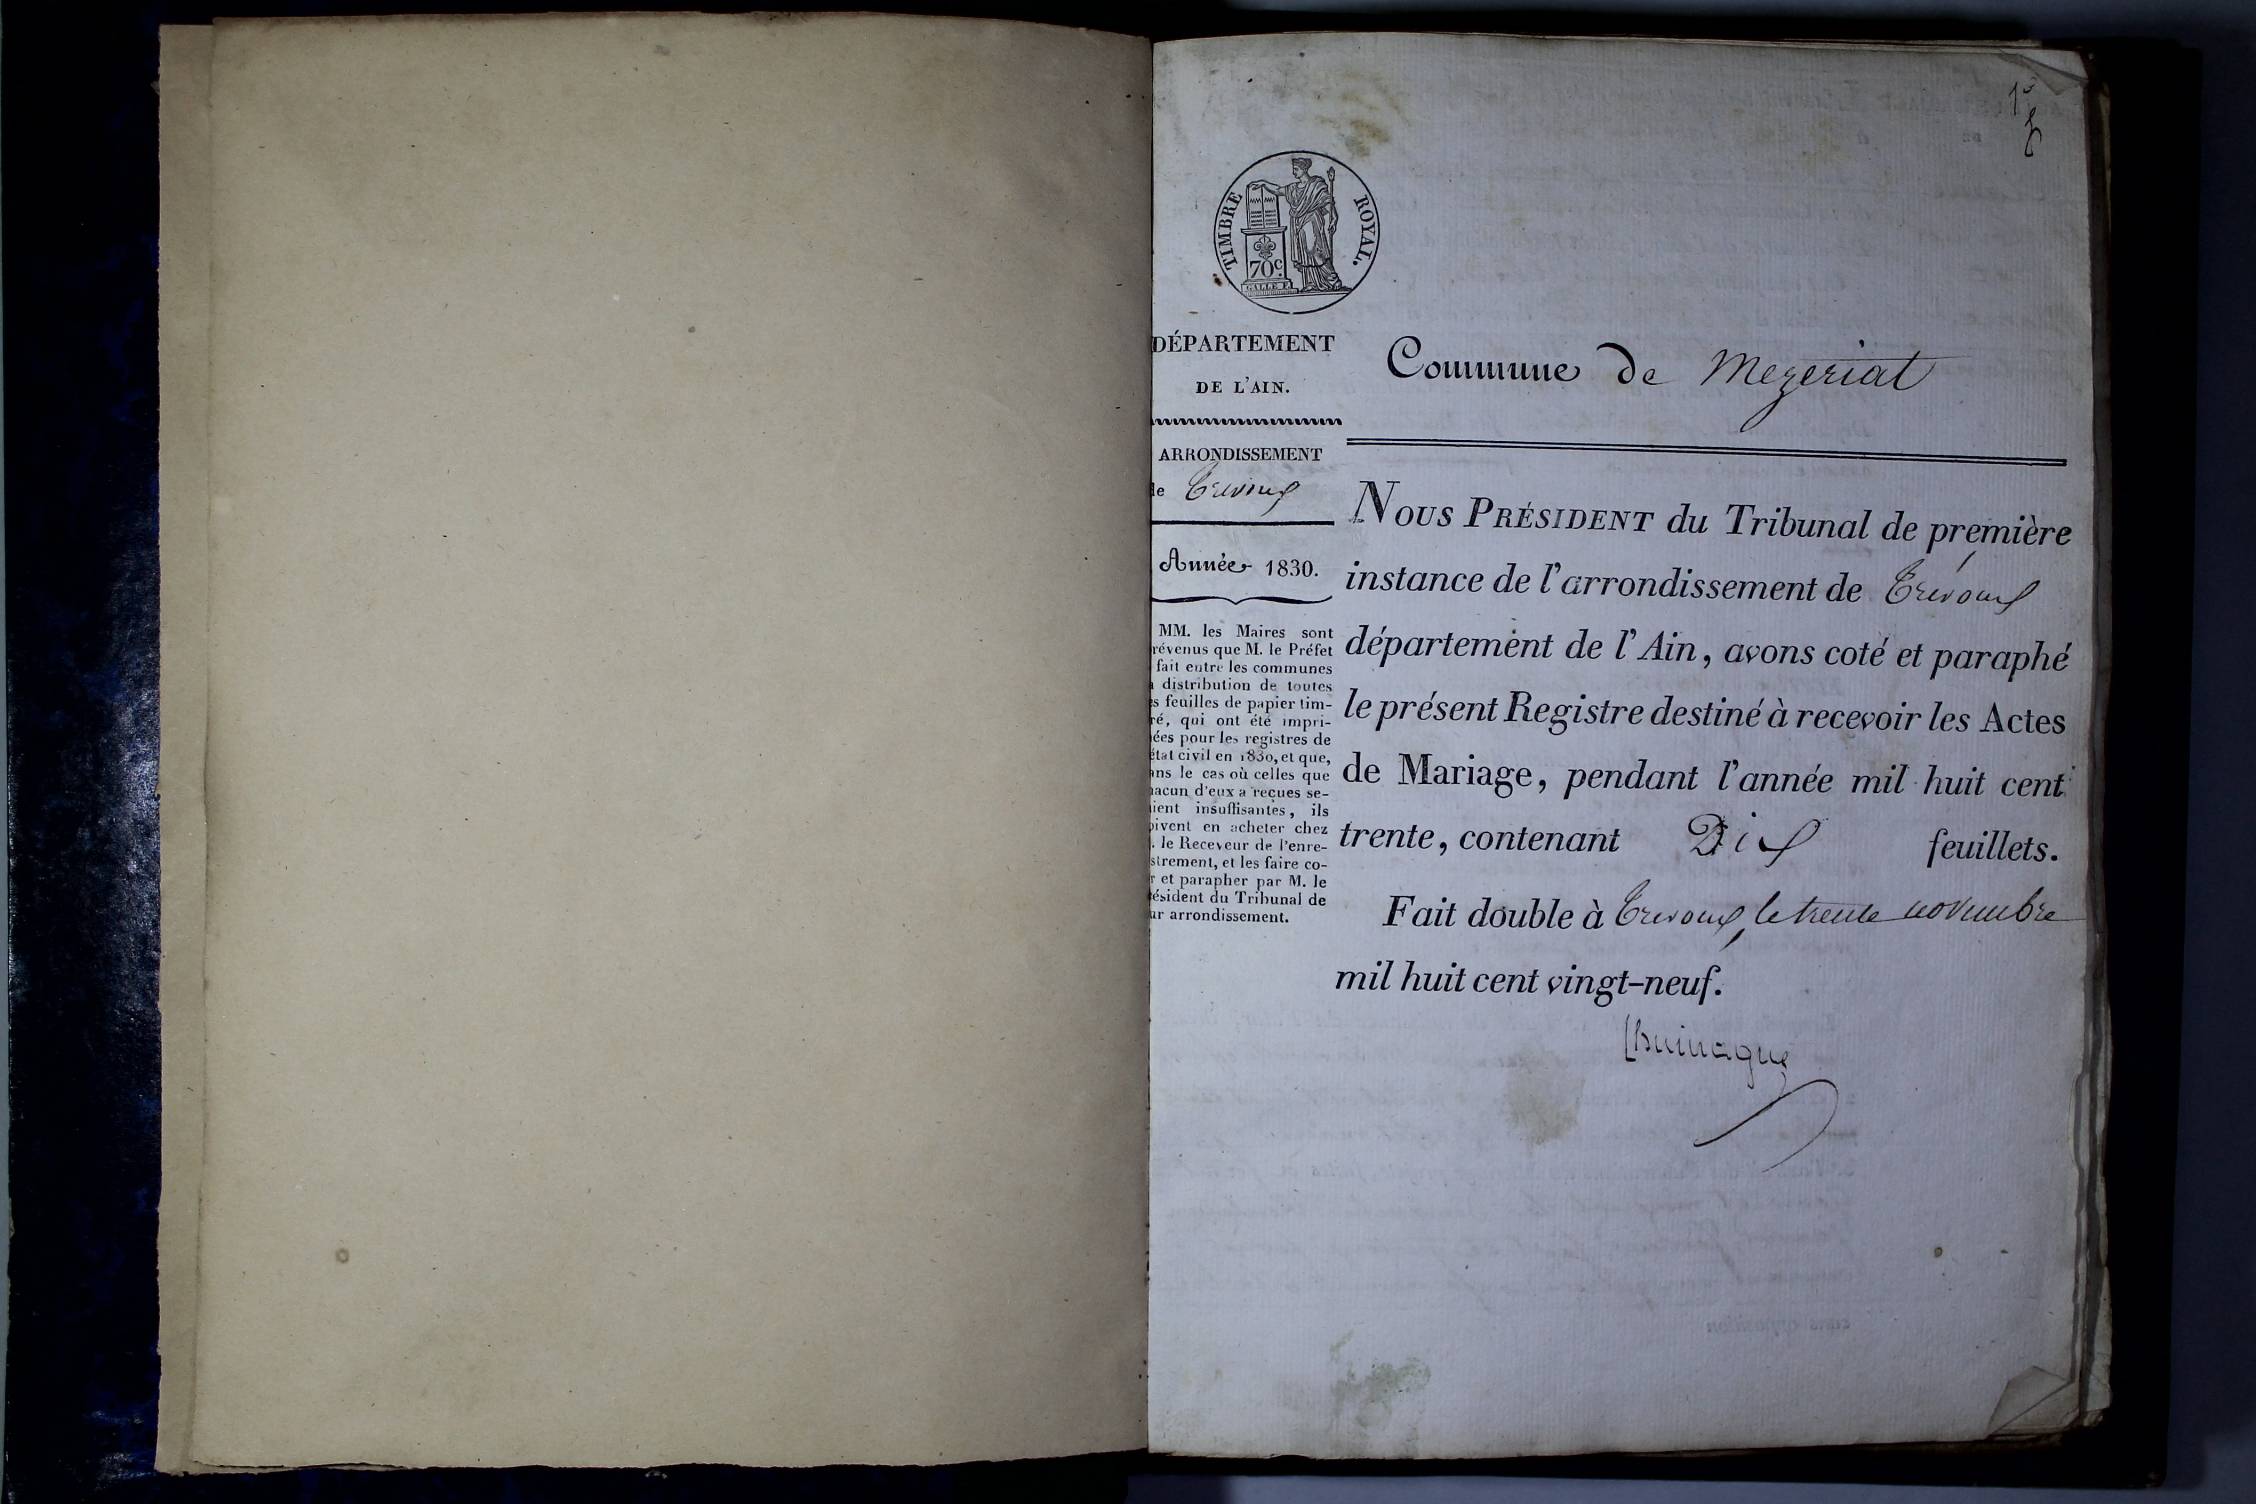 1er
TIMBRE ROYAL.
70c.
GALLE F.
DÉPARTEMENT
DE L'AIN.
ARRONDISSEMENT
de Trévoux
Année 1830.
MM. les Maires sont
révenus que M. le Préfet
fait entre les communes
a distribution de toutes
es feuilles de papier tim-
ré, qui ont été impri-
ées pour les registres de
état civil en 1830, et que,
ans le cas où celles que
hacun d'eux a reçues se-
aient insuffisantes, ils
oivent en acheter chez
. le Receveur de l'enre-
strement, et les faire co-
r et parapher par M. le
résident du Tribunal de
ur arrondissement.
Commune de Mezeriat
NOUS PRÉSIDENT du Tribunal de première
instance de l'arrondissement de Trévoux
département de l'Ain, avons coté et paraphé
le présent Registre destiné à recevoir les Actes
de Mariage, pendant l'année mil huit cent
trente, contenant Dix feuillets.
Fait double à Trevoux, le trente novembre
mil huit cent vingt-neuf.